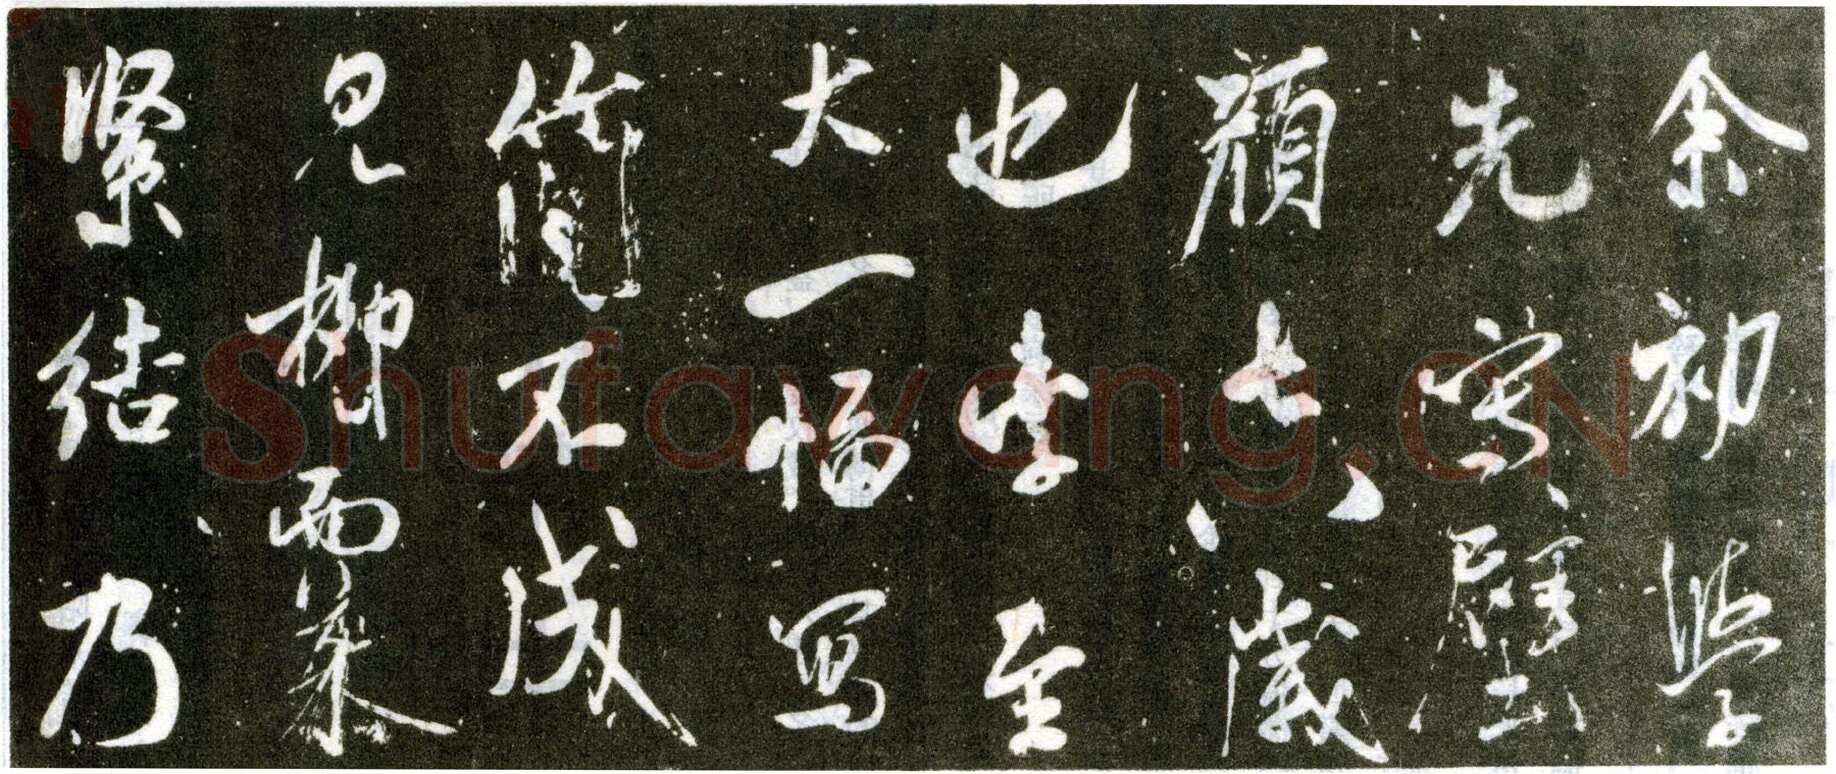 余初學
先寫壁
顏七八歲
也字至
大一幅寫
簡不成
見柳而慕
緊結乃
Shufawang.CN